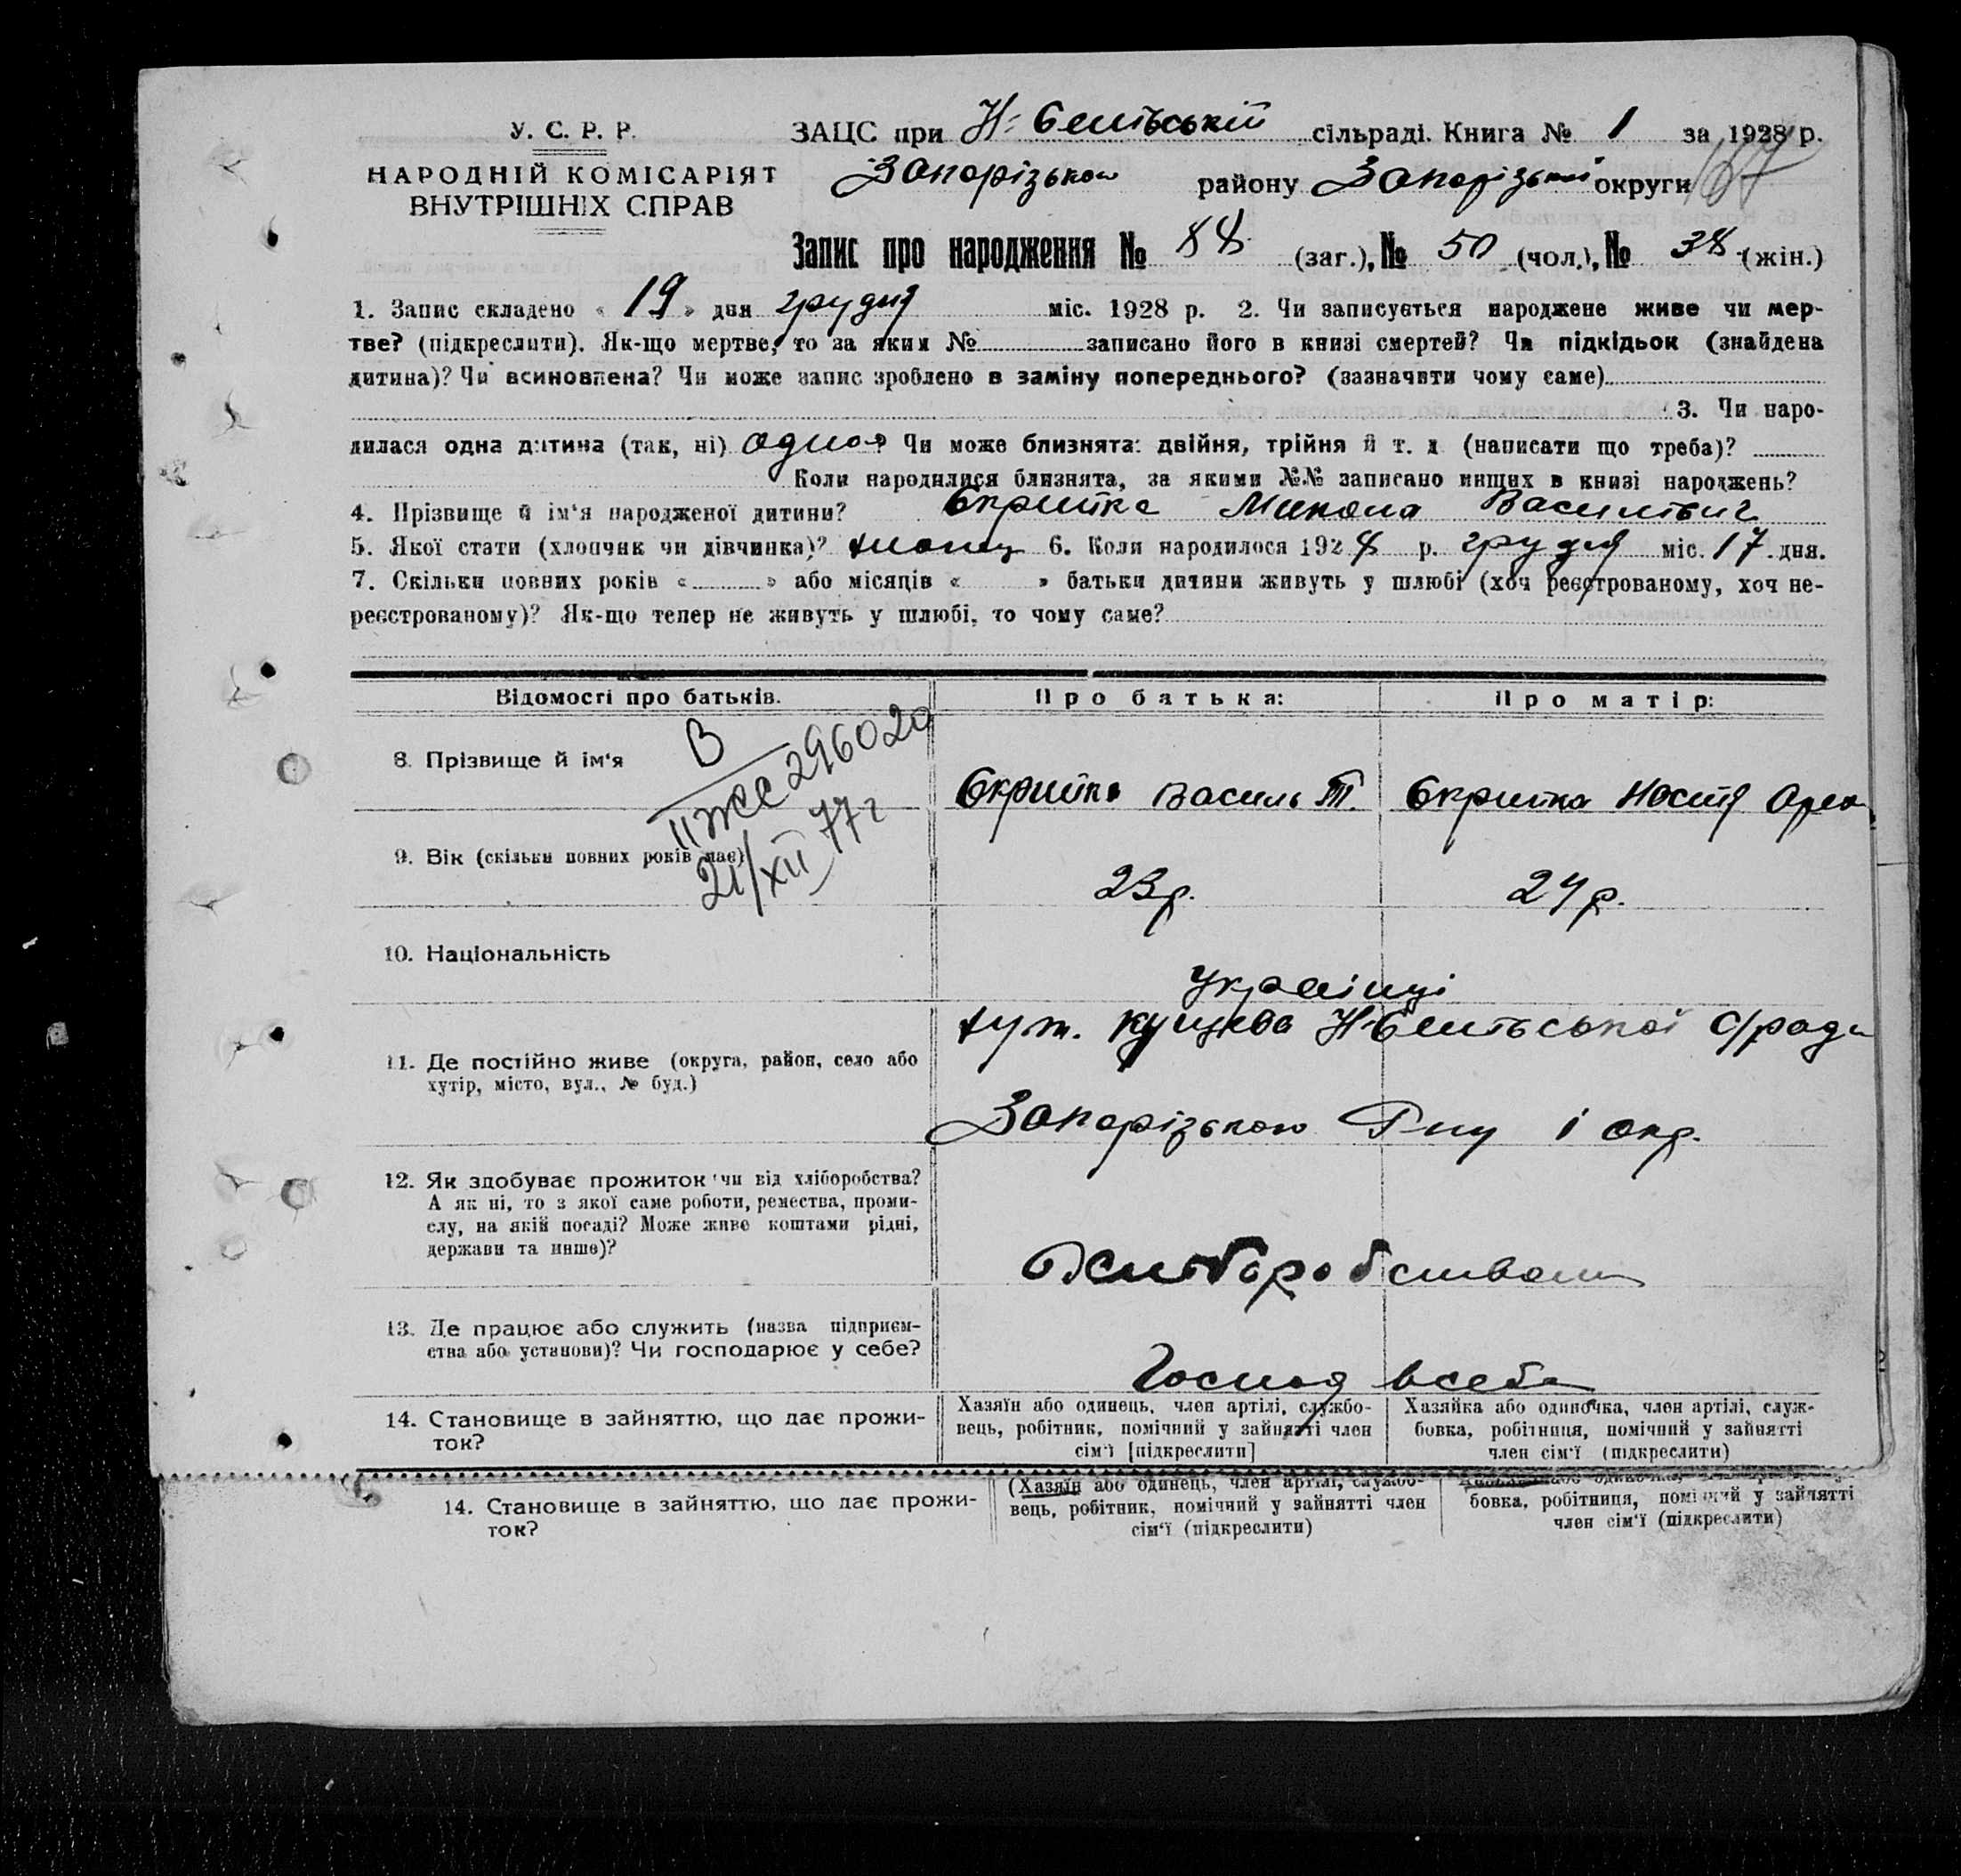 У. С. Р. Р.
НАРОДНІЙ КОМІСАРІЯТ
ВНУТРІШНІХ СПРАВ
ЗАЦС при сільраді. Книга № 1 за 1928 р.
Запорізького району Запорізької округи 167
Запис про народження № 88 (заг.), № 50 (чол.), № 38 (жін.)
1. Запис складено « 19 » дня грудня міс. 1928 р. 2. Чи записується народжене живе чи мер-
тве? (підкреслити). Як-що мертве, то за яким № записано його в книзі смертей? Чи підкідьок (знайдена
дитина)? Чи всиновлена? Чи може запис зроблено в заміну попереднього? (зазначити чому саме)
3. Чи наро-
дилася одна дитина (так, ні) одна Чи може близнята: двійня, трійня й т. д (написати що треба)?
Коли народилися близнята, за якими №№ записано инших в книзі народжень?
4. Прізвище й ім'я народженої дитини? Скрипка Микола Васильович
5. Якої стати (хлопчик чи дівчинка)? хлопец 6. Коли народилося 1928 р. грудня міс. 17 дня.
7. Скільки повних років « » або місяців « » батьки дитини живуть у шлюбі (хоч реєстрованому, хоч не-
реєстрованому)? Як-що тепер не живуть у шлюбі, то чому саме?
Відомості про батьків.
Про батька:
Про матір:
В
ІІ ЖС 296020
21/XII 77 г
8. Прізвище й ім'я
Скрипка Василь Т.
Скрипка Настя
9. Вік (скільки повних років має)
23 р.
24 р.
10. Національність
українці
11. Де постійно живе (округа, район, село або
хутір, місто, вул., № буд.)
хут. с/ради
Запорізького Р-ну і окр.
12. Як здобуває прожиток (чи від хліборобства?
А як ні, то з якої саме роботи, ремества, проми-
слу, на якій посаді? Може живе коштами рідні,
держави та инше)?
Хліборобством
13. Де працює або служить (назва підприєм-
ства або установи)? Чи господарює у себе?
Господ всебе
14. Становище в зайняттю, що дає прожи-
ток?
Хазяїн або одинець, член артілі, службо-
вець, робітник, помічний у зайнятті член
сім'ї [підкреслити]
Хазяйка або одиночка, член артілі, служ-
бовка, робітниця, помічний у зайнятті
член сім'ї (підкреслити)
14. Становище в зайняттю, що дає прожи-
ток?
(Хазяїн або одинець, член артілі, службо-
вець, робітник, помічний у зайнятті член
сім'ї (підкреслити)
бовка, робітниця, помічний у зайнятті
член сім'ї (підкреслити)